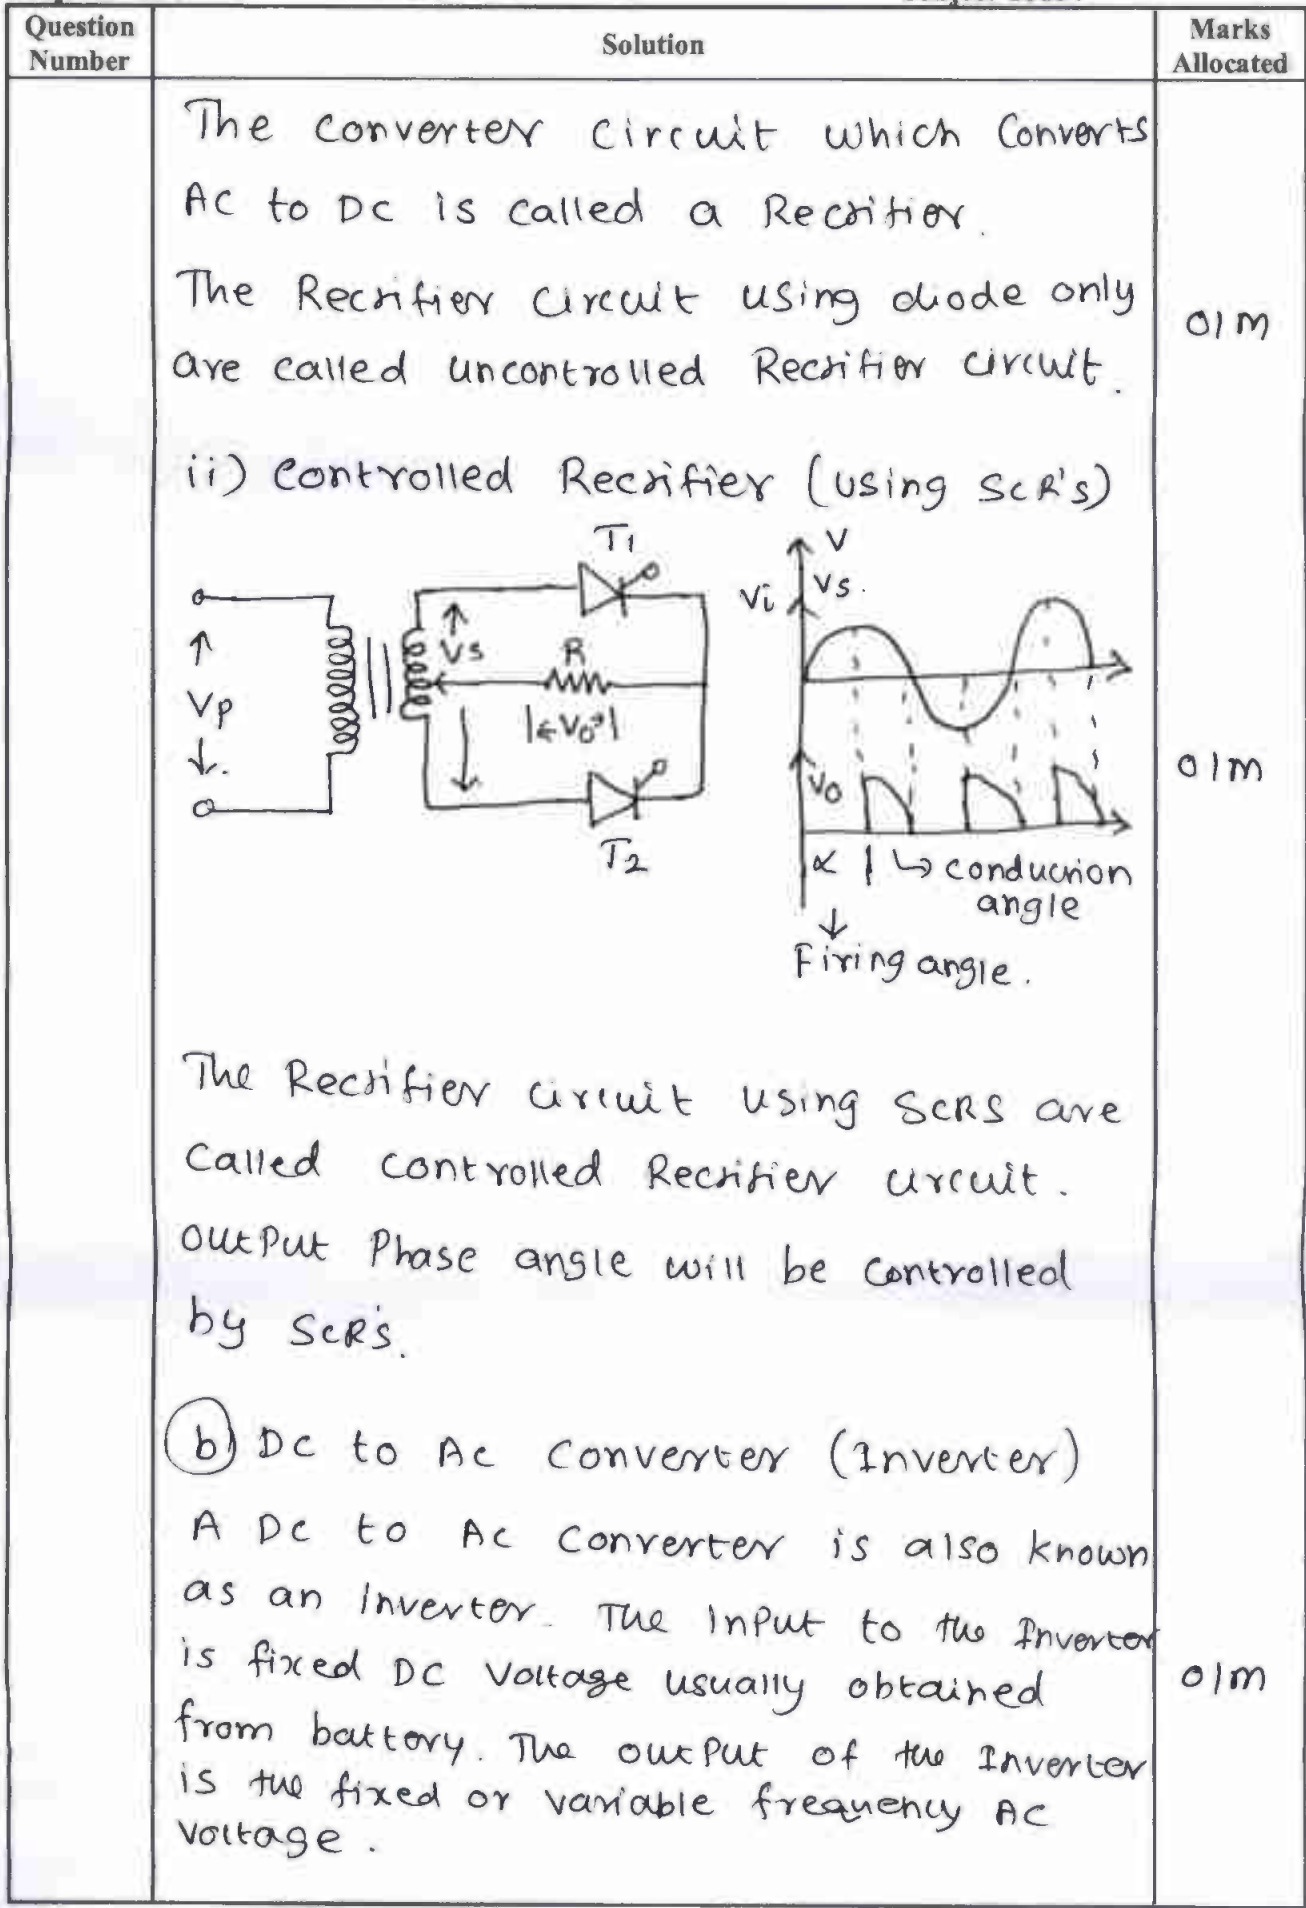 Question Number
Solution
Marks Allocated
The converter circuit which Converts
AC to DC is called a Rectifier.
The Rectifier circuit using diode only
are called uncontrolled Rectifier circuit.
01M
ii) Controlled Rectifier (using SCR's)
T1
Vp
Vs
R
Vo
T2
V
Vi
Vs.
Vo
α
conduction
angle
Firing angle.
01M
The Rectifier circuit using SCRS are
Called controlled Rectifier circuit.
Output Phase angle will be controlled
by SCR's.
b) DC to AC Converter (Inverter)
A DC to AC Converter is also known
as an Inverter. The input to the Inverter
is fixed DC Voltage usually obtained
from battery. The output of the Inverter
is the fixed or variable frequency AC
Voltage.
01M